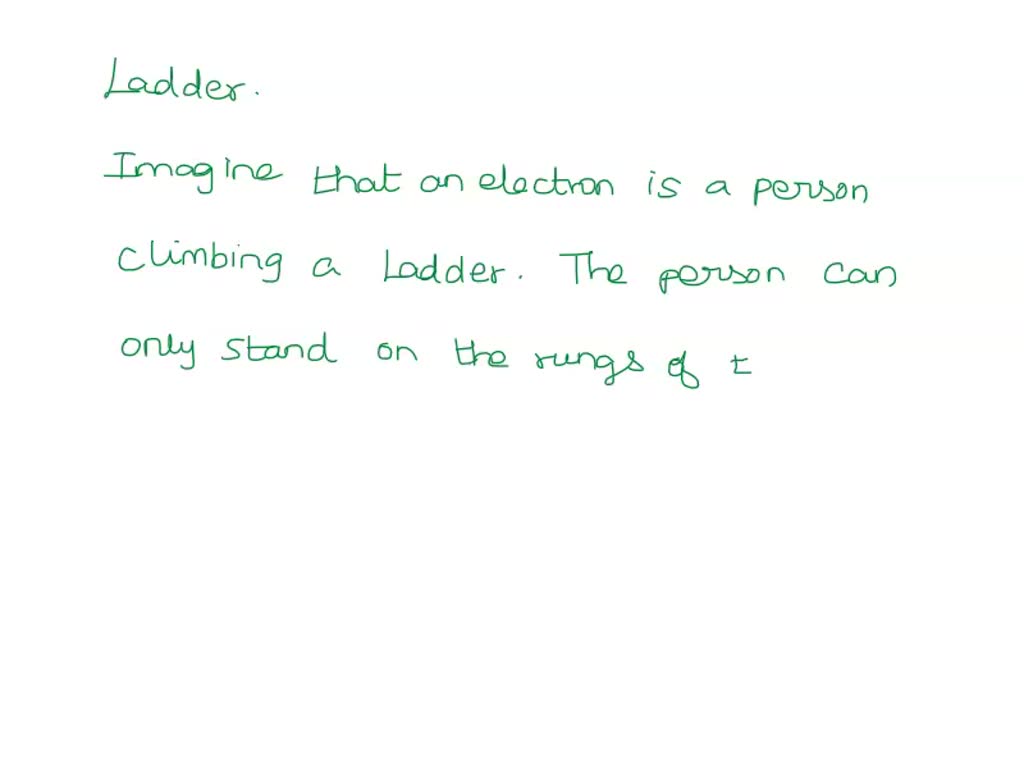 Ladder.
Imagine that an electron is a person
climbing a Ladder. The person can
only stand on the rungs of t